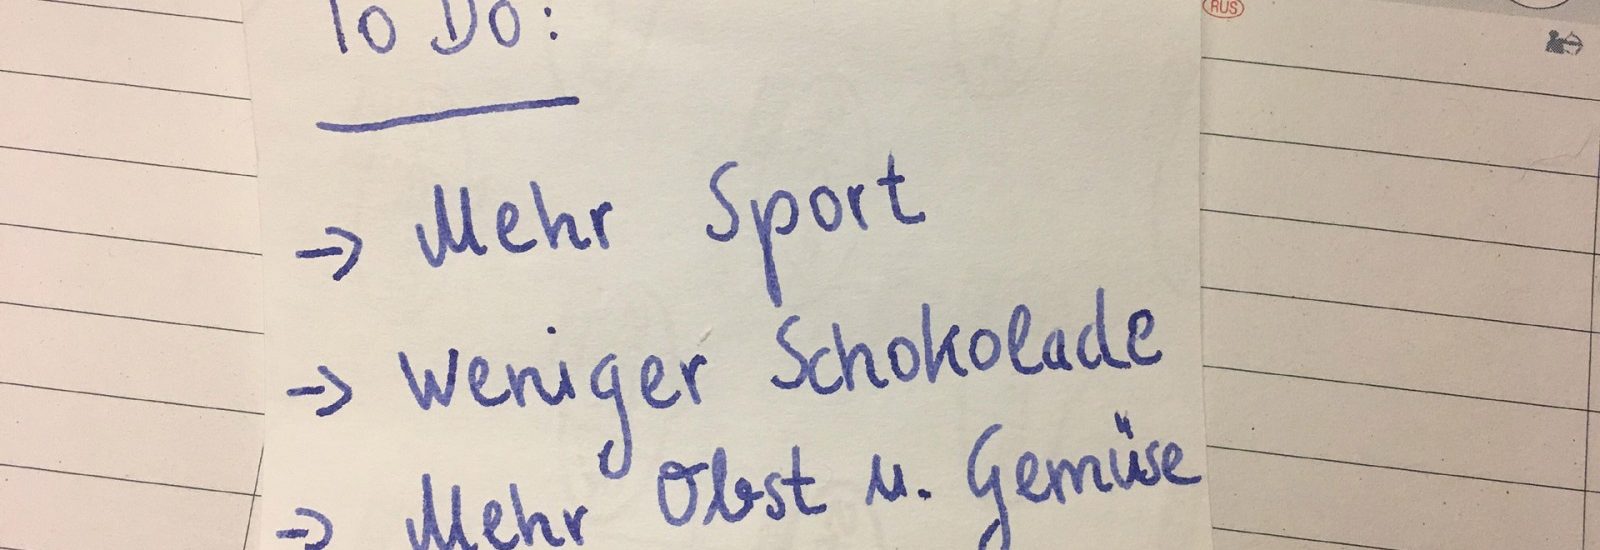 To Do:
→ Mehr Sport
→ Weniger Schokolade
→ Mehr Obst u. Gemüse
RUS